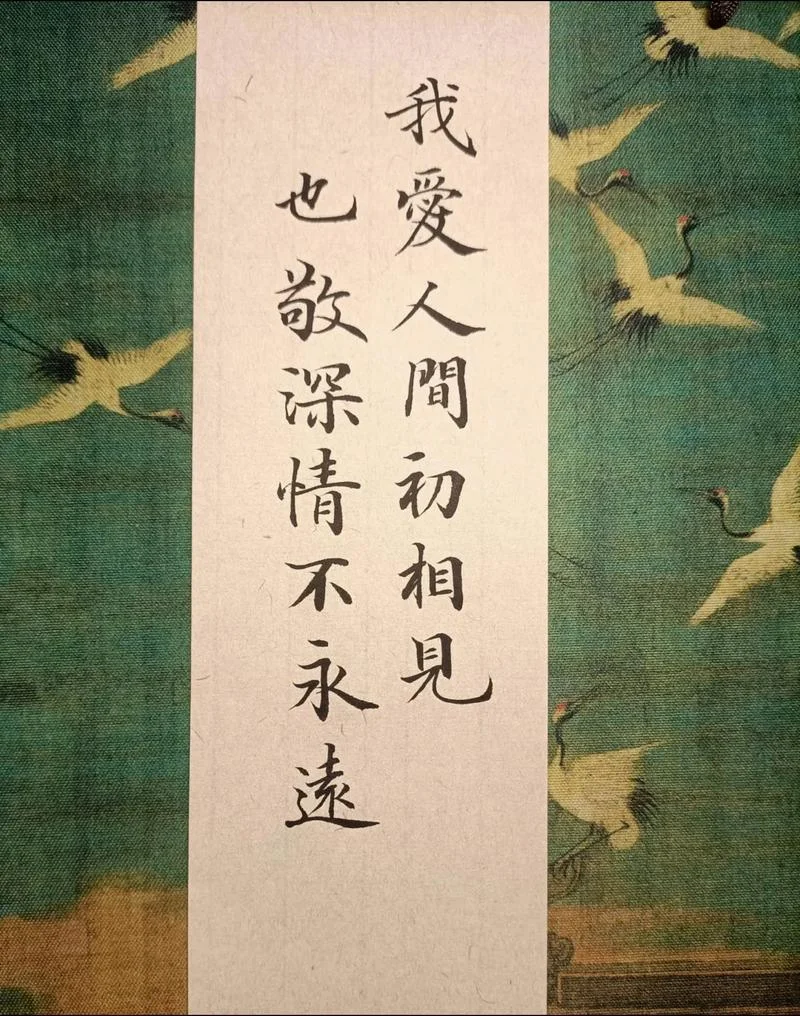 我愛人間初相見
也敬深情不永遠